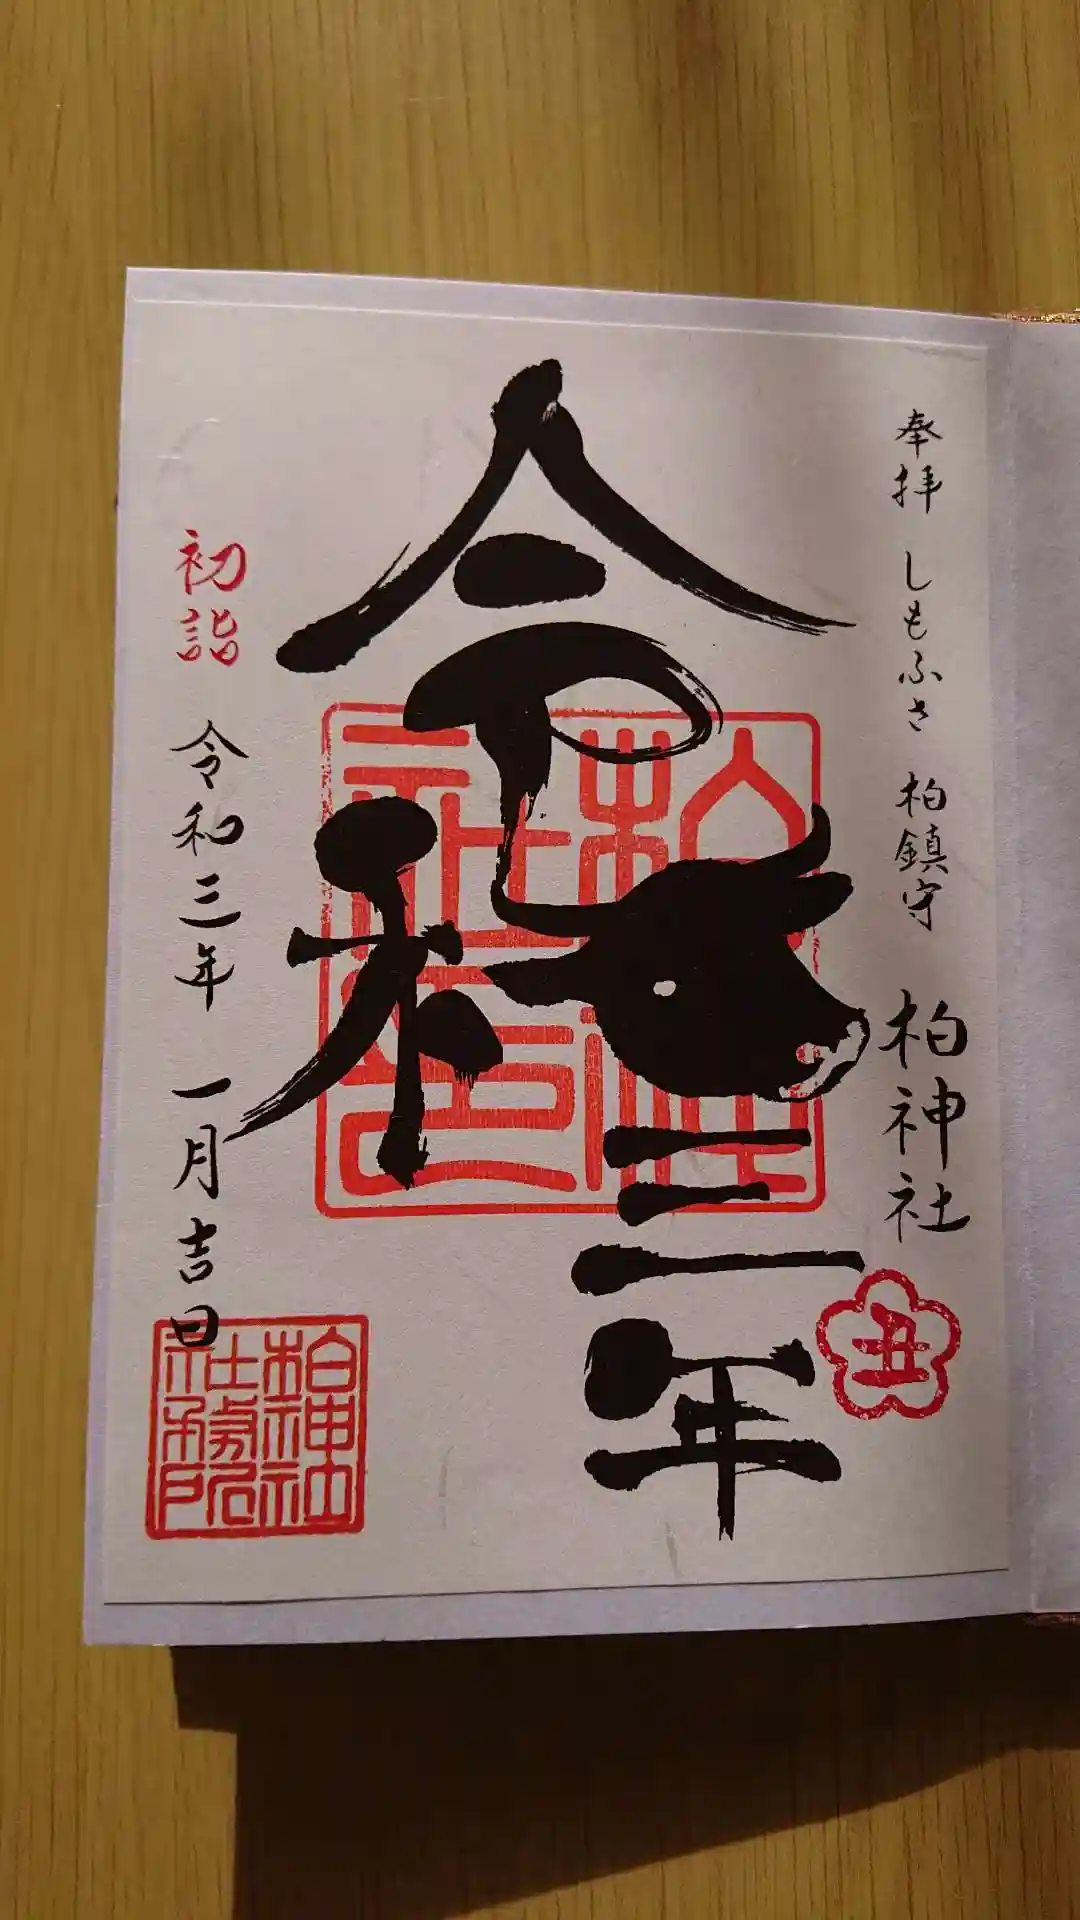 奉拝 しもふさ 柏鎮守 柏神社
丑
令和三年
柏神社之印
初詣 令和三年 一月吉日
柏神社社務所